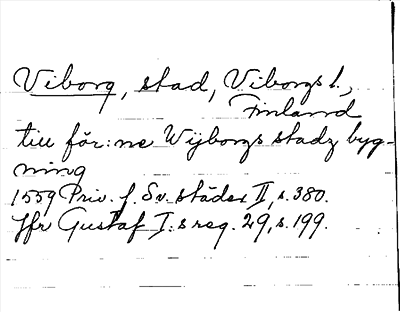 Viborg, stad, Viborgs l.,
Finland
till för:ne Wijborgs stadz byg-
ning
1559 Priv. f. Sv. städer II, s. 380.
Jfr Gustaf I:s reg. 29, s. 199.